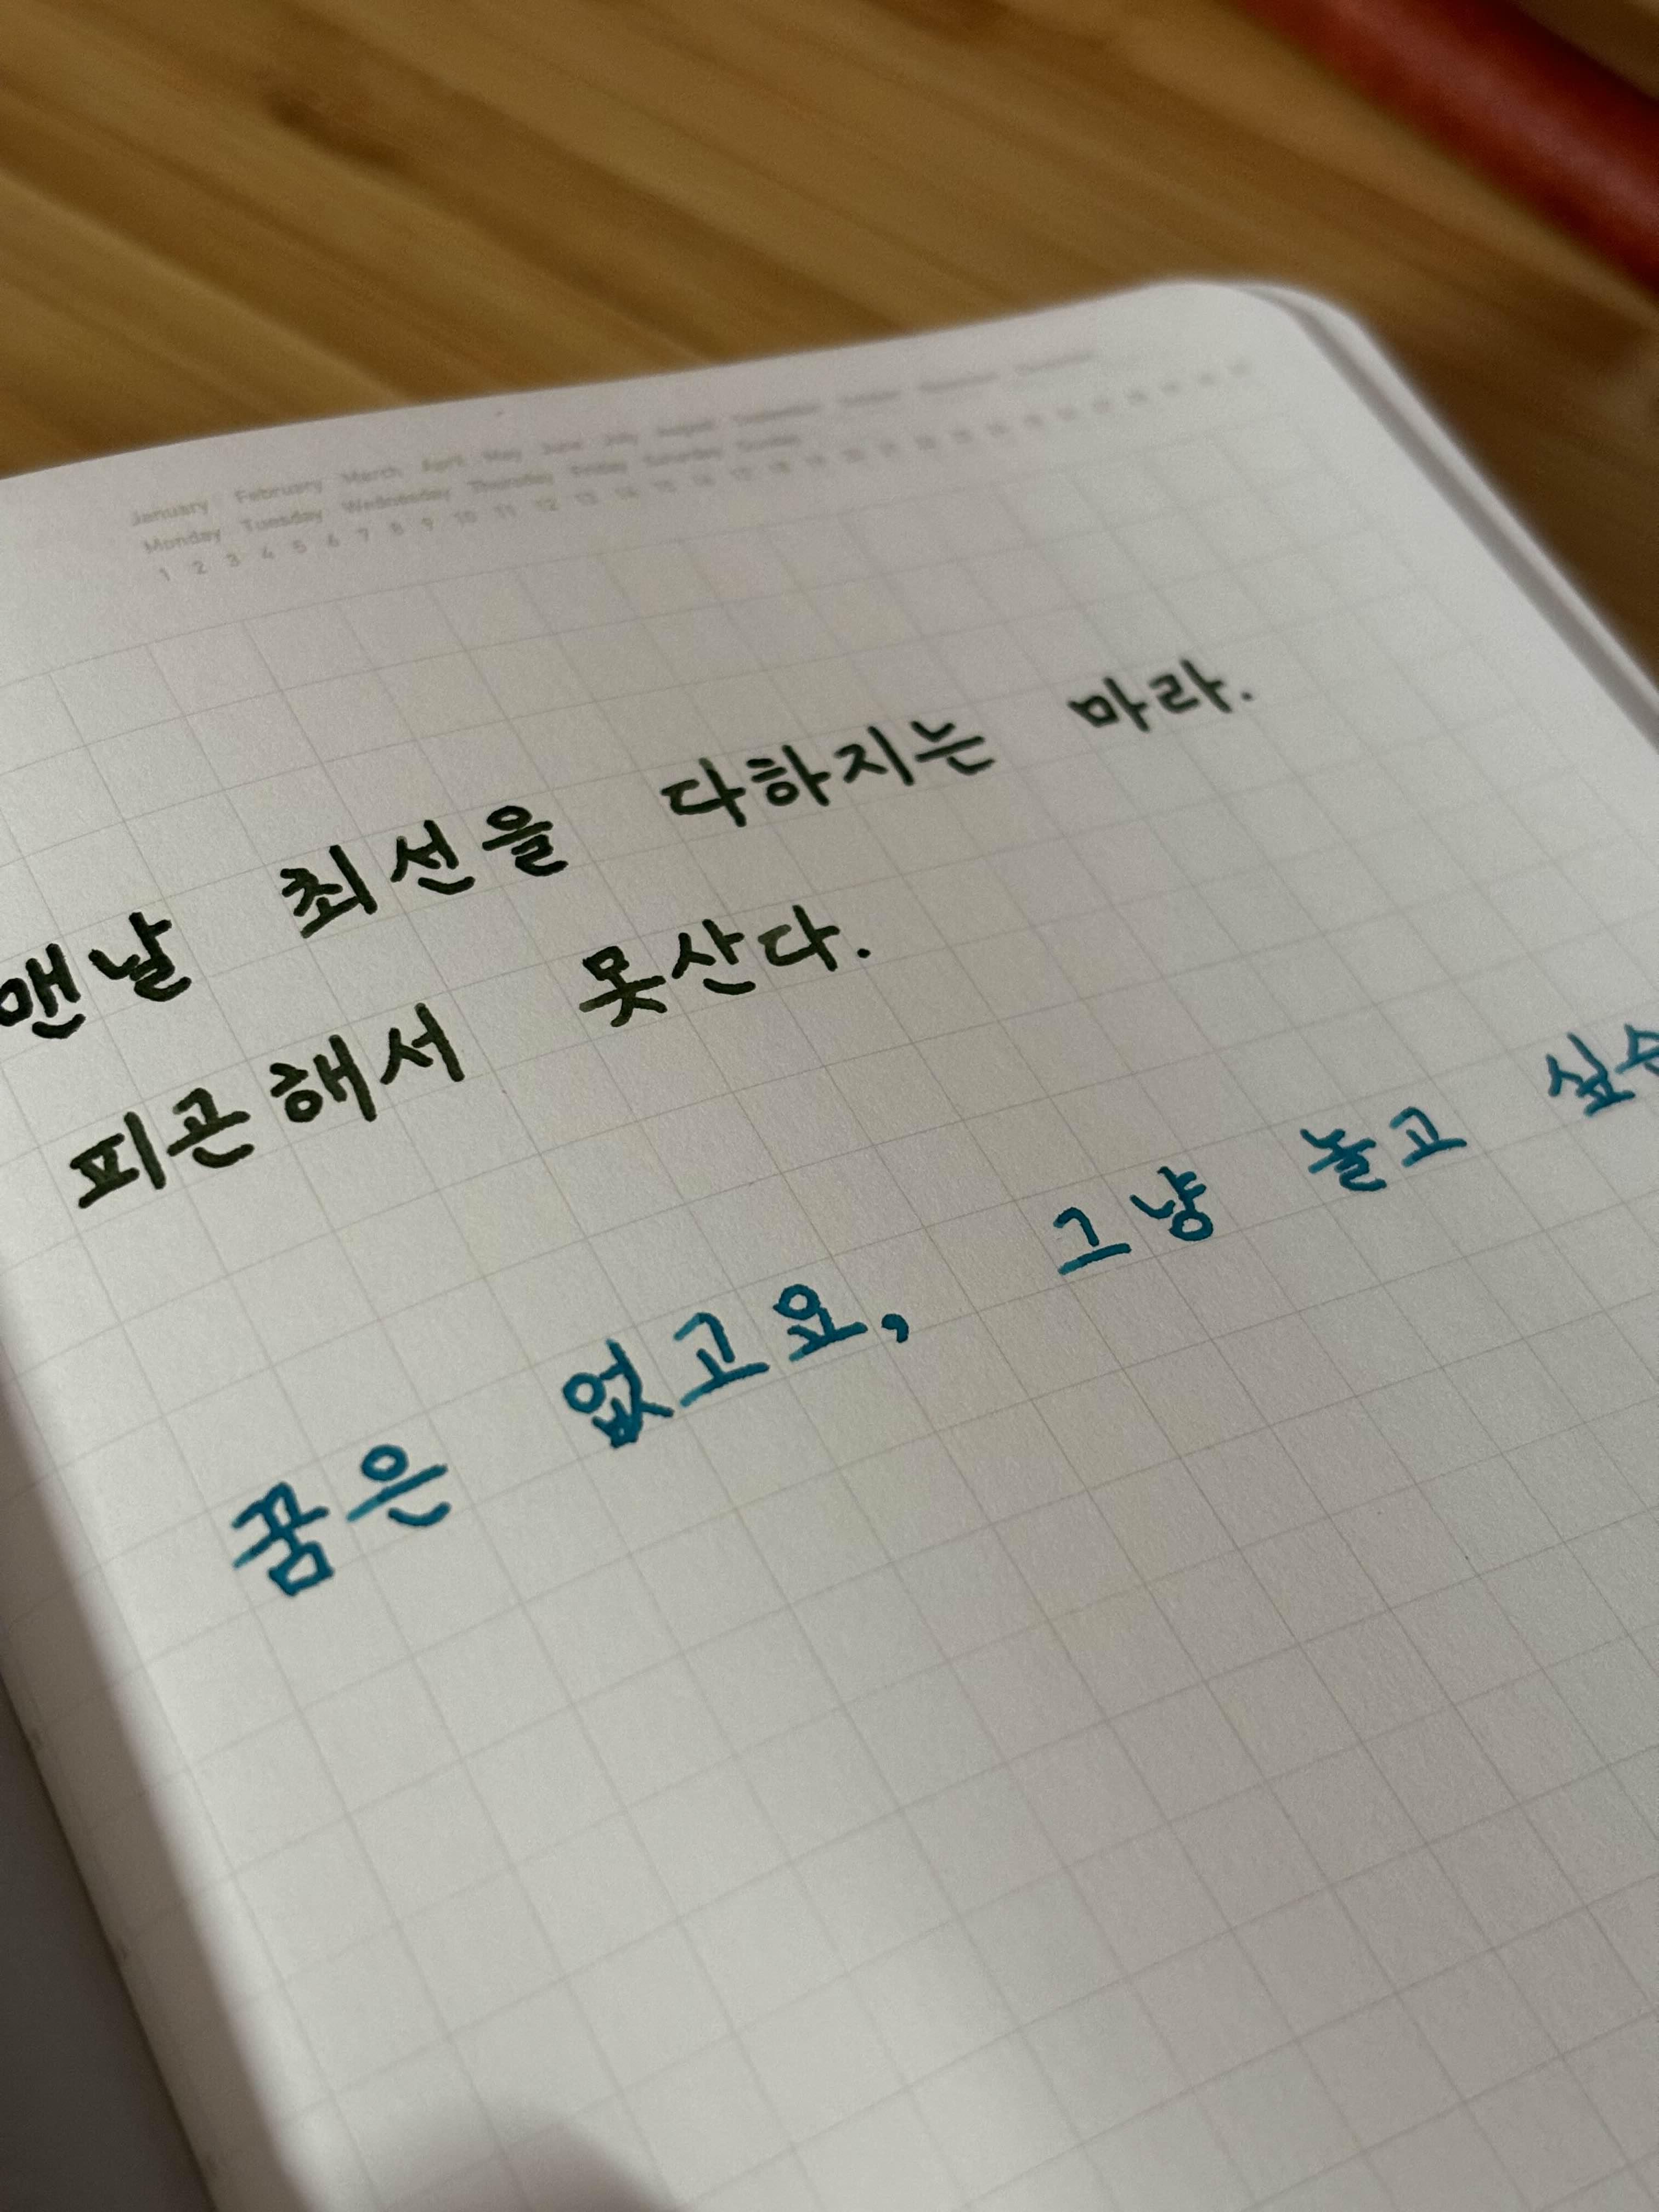 January February March April May June July August September October November December
Monday Tuesday Wednesday Thursday Friday Saturday Sunday
1 2 3 4 5 6 7 8 9 10 11 12 13 14 15 16 17 18 19 20 21 22 23 24 25 26 27 28 29 30 31
맨날 최선을 다하지는 마라.
피곤해서 못산다.
꿈은 없고요, 그냥 놀고 싶습